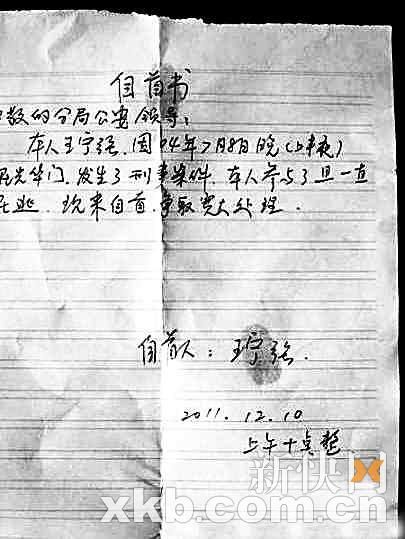 自首书
敬的分局公安领导：
本人王宁强，因04年7月8日晚（上半夜）
光华门，发生了刑事案件，本人参与了且一直
在逃，现来自首，争取宽大处理．
自首人：王宁强．
2011．12．10
上午十点整．
新快网
xkb.com.cn